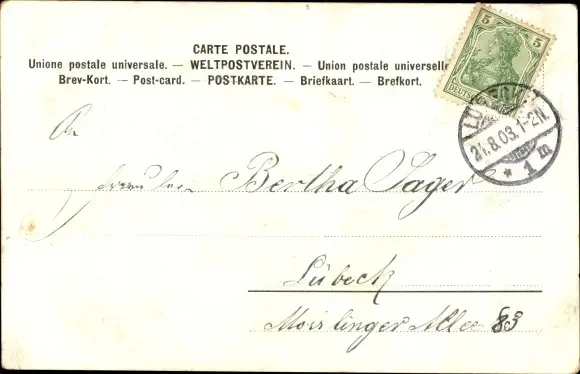 CARTE POSTALE.
Unione postale universale. — WELTPOSTVEREIN. — Union postale universelle
Brev-Kort. — Post-card. — POSTKARTE. — Briefkaart. — Brefkort.
5 5
DEUTSCHES
24.8.03. 1-2N.
* 1 m
An
Fräulein Bertha Sager
Lübeck
Moislinger Allee 83